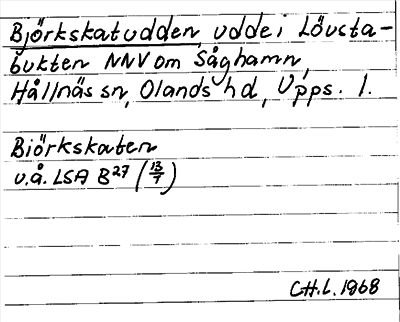 Björkskatudden, udde i Lövsta-
bukten NNV om Såghamn,
Hållnäs sn, Olands hd, Upps. l.
Biörkskaten
u.å. LSA B27 (13/7)
C.H.L. 1968